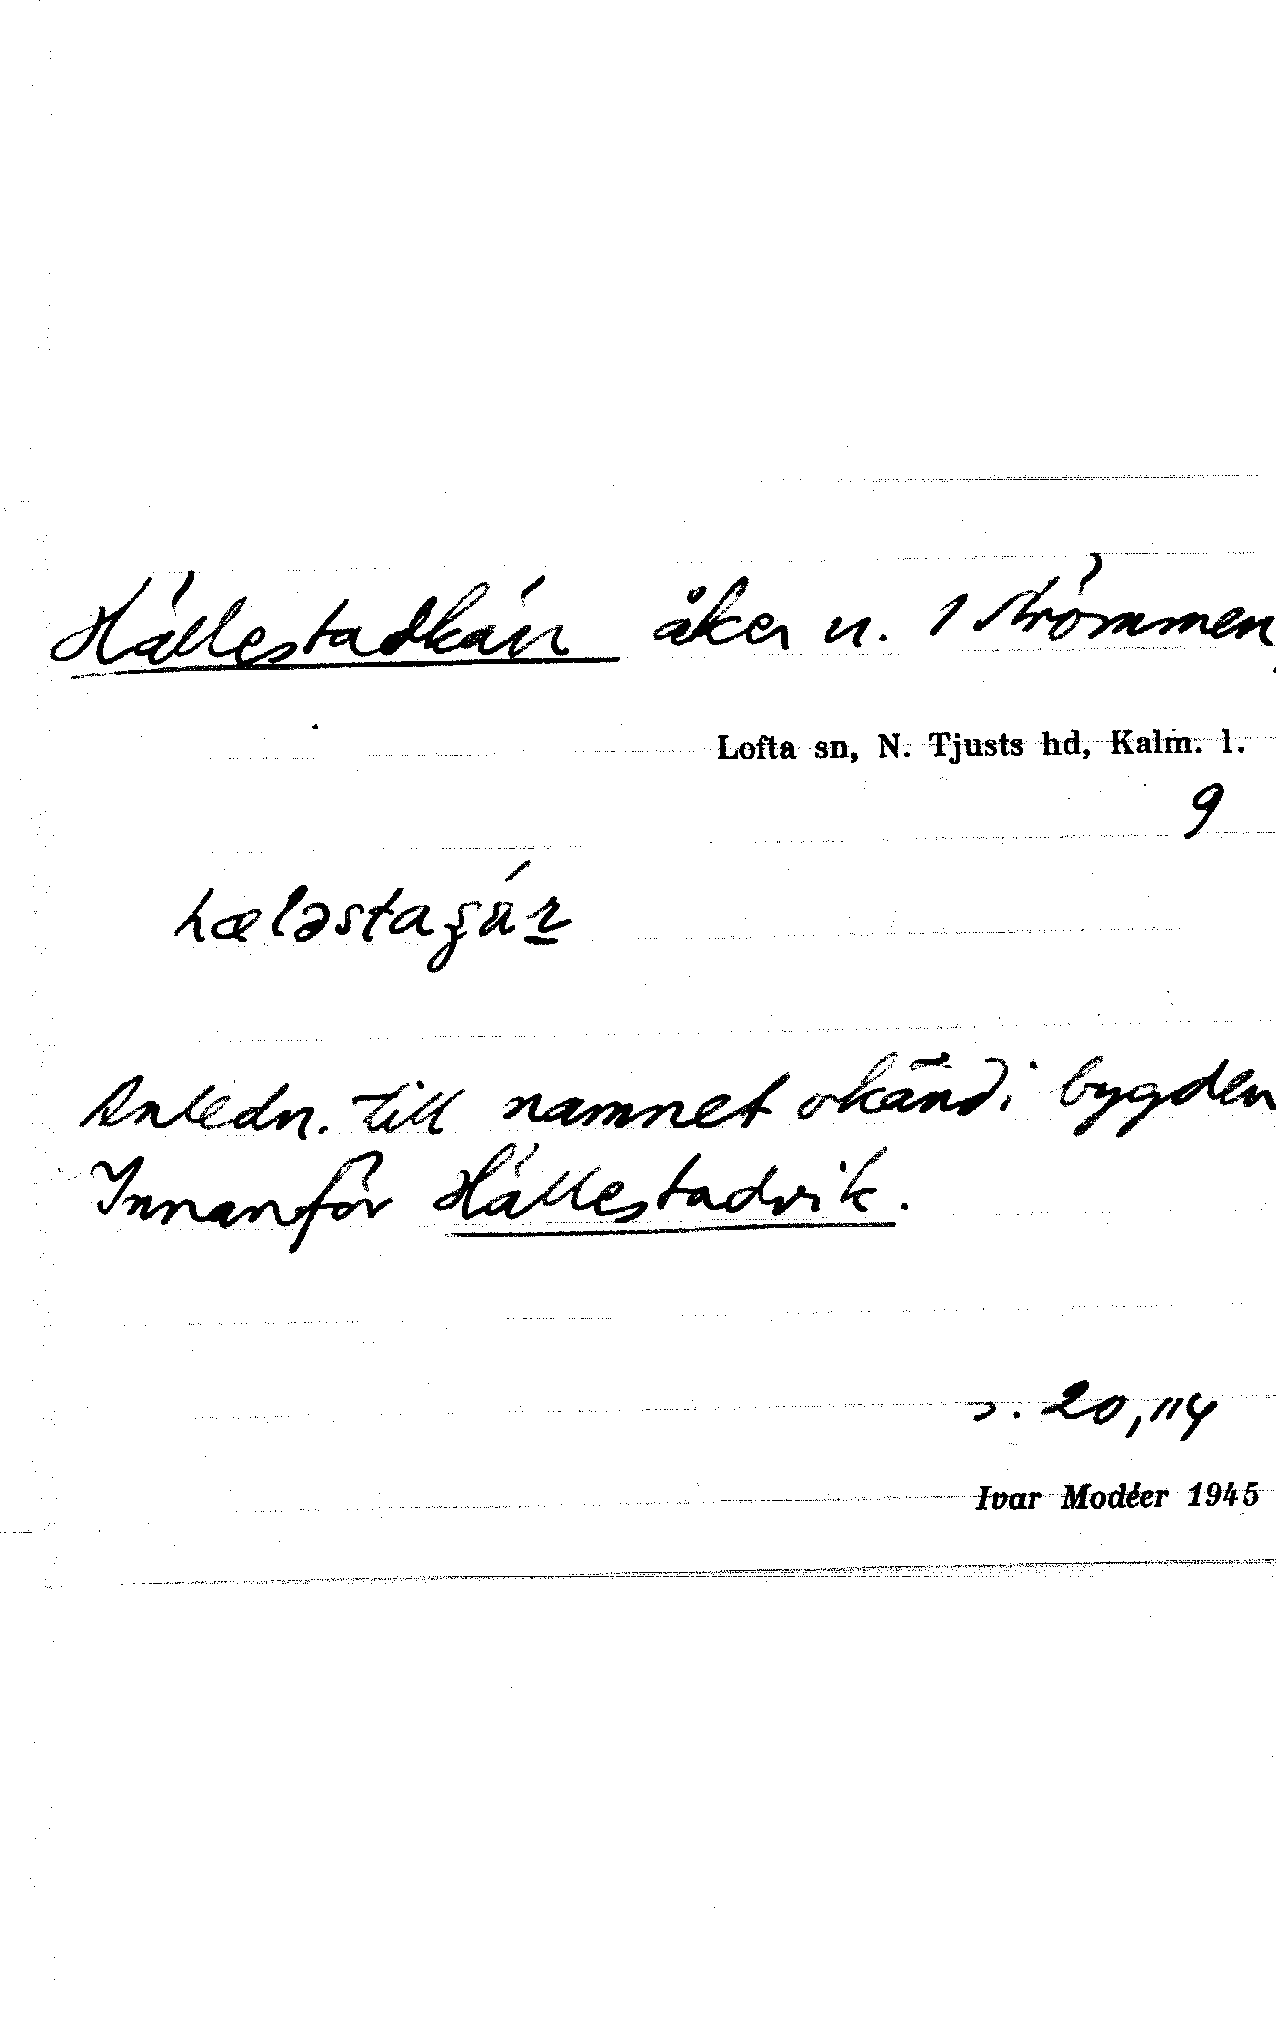 Hällestadkärr åker n. 1 Strömmen
Lofta sn, N. Tjusts hd, Kalm. l.
9
Anledn. till namnet okänd i bygden
Innanför Hällestadvik.
s. 20,114
Ivar Modéer 1945